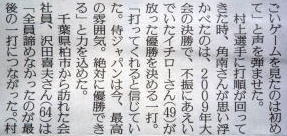 ごいゲームを見たのは初め
て」と声を弾ませた。
　村上選手に打順が回って
きた時、角南さんが思い浮
かべたのは、２００９年大
会の決勝で、不振にあえい
でいたイチローさん49が
放った優勝を決める一打。
「打ってくれると信じてい
た。侍ジャパンは今、最高
の雰囲気。絶対に優勝でき
る」と力を込めた。
　千葉県柏市から訪れた会
社員、沢田喜夫さん64は
「全員諦めなかったのが最
後の一打につながった。（村